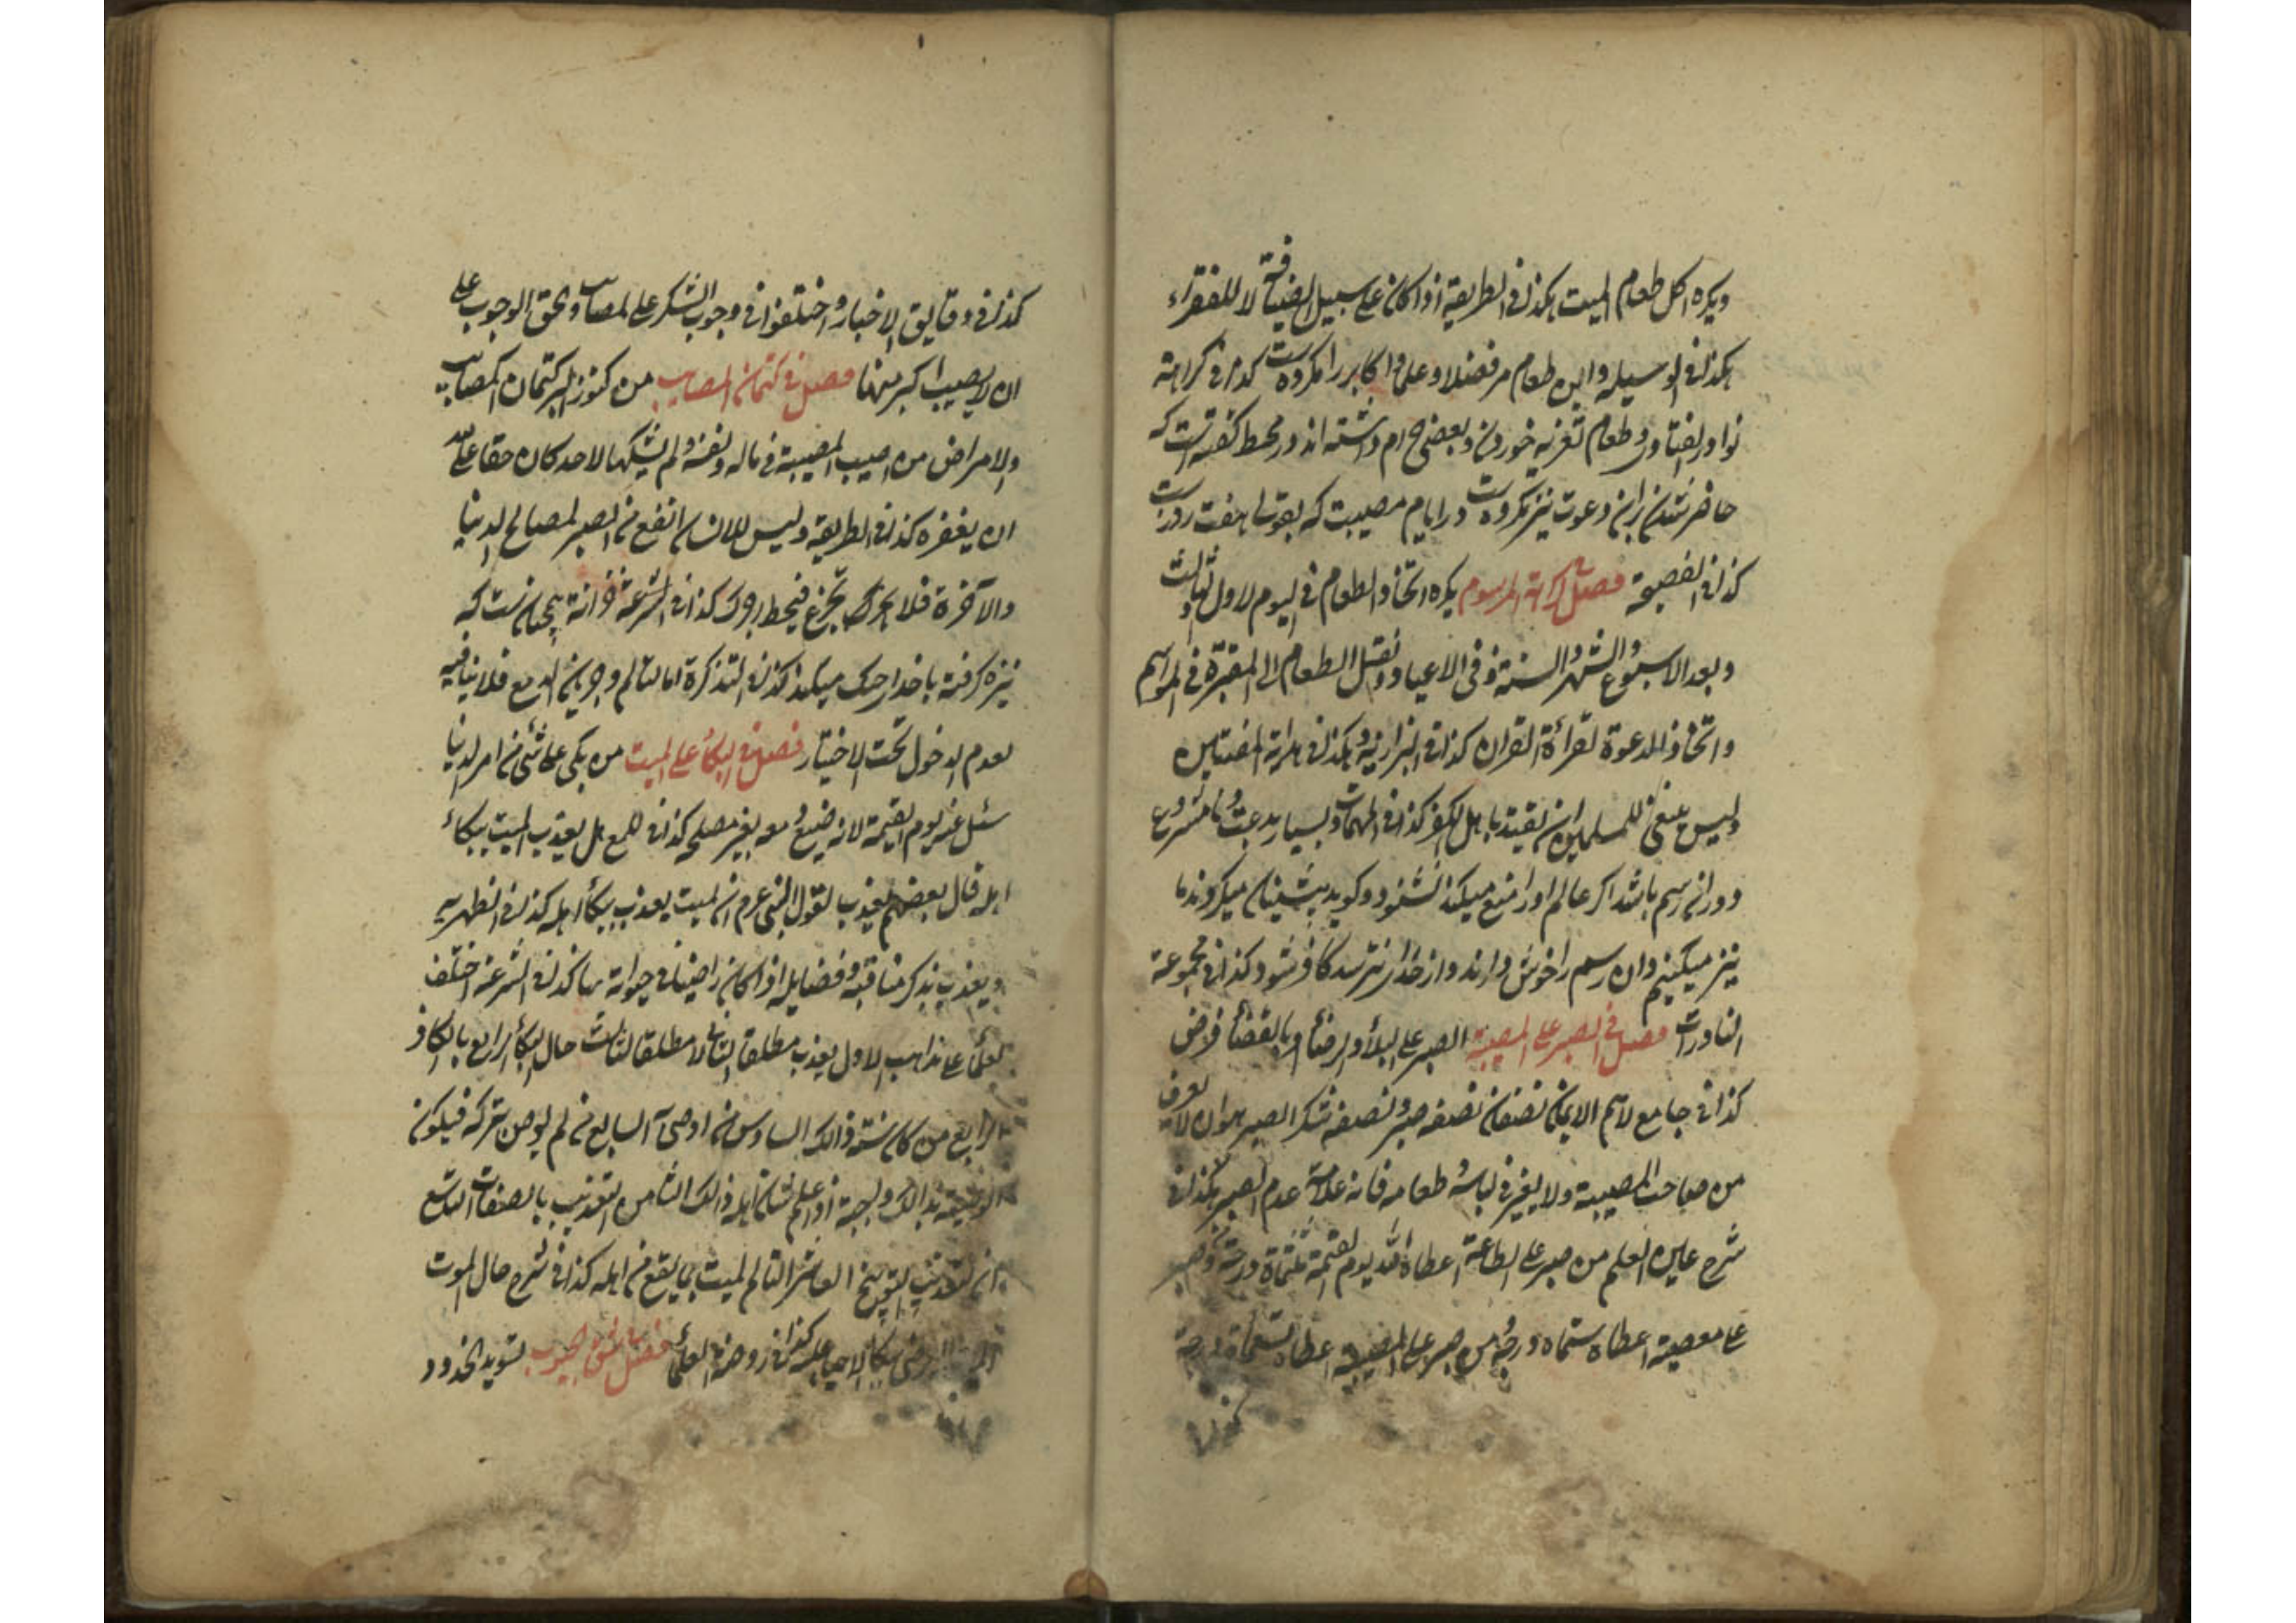 ویکره اکل طعام المیت هکذا فی الطریقة اذا کان علی سبیل الضیافة لا للفقراء
هکذا فی الوسیله واین طعام مر فضلا و علما و اکابر را مکروه است کذا فی کراهة
نوادر الفتاوی و طعام تعزیه خوردن و بعضی حرام داشته اند در محیط گفته است که
حاضر شدن برای دعوت نیز مکروه است در ایام مصیبت که بقولی هفت روز است
کذا فی النصیحة فصل کراهة المرسوم یکره اتخاذ الطعام فی الیوم الاول و الثالث
وبعد الاسبوع والشهر والسنة و فی الاعیاد و نقل الطعام الی المقبرة فی المواسم
واتخاذ الدعوة لقرأة القران کذا فی البزازیه و هکذا فی هدایة المفتایین
ولیس ینبغی للمسلمین ان یقتد باهل الکفر کذا فی المهمات و بسیار بدعت و نامشروع
و در آن رسم باشد اگر عالم او را منع میکند نشنود و گوید پیشینان میکردند ما
نیز میکنیم و ان رسم را خوش دارند و از خدا نترسد کافر شود کذا فی مجموعة
النادرات فصل فی الصبر علی المصیبة الصبر علی البلأ والرضأ بالقضأ فرض
کذا فی جامع لاسم الایمان نصفان نصفه صبر و نصفه شکر الصبر هو ان لا یعرف
من صاحب المصیبة ولا یغیر فی لباسه و طعامه فانه علامة عدم الصبر هکذا فی
شرح عین العلم من صبر علی الطاعة اعطاه الله یوم القیمة ثلثمأة درجة و من صبر
علی معصیة اعطاه ستماه درجة و من صبر علی المصیبة اعطاه تسعمأة درجة
کذا فی دقایق الاخبار و اختلفوا فی وجوب الشکر علی المصایب و یحق الوجوب علی
ان لا یصیب اکبر منها فصل فی کتمان المصایب من کنوز البر کتمان المصایب
والامراض من اصیب المصیبة فی ماله و نفسه ولم یشکها لاحد کان حقا علی الله
ان یغفره کذا فی الطریقة ولیس للانسان انفع من الصبر لمصالح الدنیا
والاخرة فلا یجزع فیحبط اجرک کذا فی الشرعة
نیزه گرفته با خدا جنگ میکند کذا فی التذکرة اما التالم و جریان الدمع فلا ینافیه
لعدم الدخول تحت الاختیار فصل فی البکأ علی المیت من بکی علی شئ من امر الدنیا
سئل عنه یوم القیمة لانه ضیع دمعه بغیر مصلحة کذا فی اللمع هل یعذب المیت ببکاء
اهله قال بعضهم یعذب لقول النبی عم ان المیت یعذب ببکأ اهله کذا فی الظهریه
ویعذب بذکر مناقبه و فضایله اذا کان راضیا فی حیواته بها کذا فی الشرعة اختلف
العلمأ علی مذاهب الاول یعذب مطلقا الثانی لا مطلقا الثالث حال البکأ الرابع بالکافر
الرابع من کان سنته ذالک السادس من اوصی السابع من لم یوص بترکه فیکون
الوصیة بذالک واجبة اذا علم شان اهله ذالک الثامن التعذیب بالصفات التاسع
ان التعذیب التوبیخ العاشر التالم المیت بما یقع من اهله کذا فی شرح حال الموت
بکأ الاحیا علیه کذا فی روضة العلمأ فصل شق الجیوب تسوید الخدود